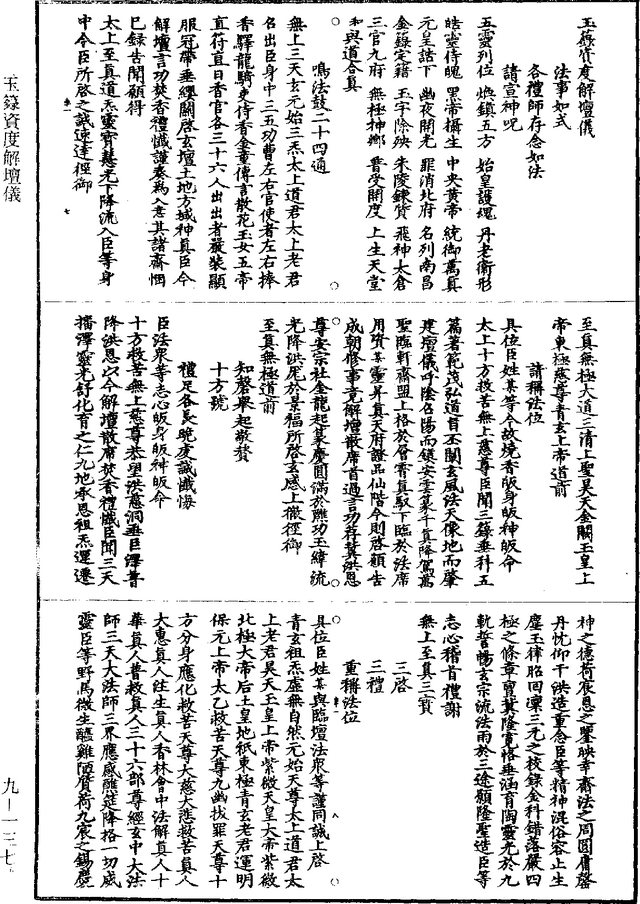 玉籙資度解壇儀
法事如式
各禮師存念如法
請宣神呪
五靈列位 煥鎮五方 始皇護魂 丹老衛形
皓靈侍魄 黑帝攝生 中央黃帝 統御萬真
元皇誥下 幽夜開光 罪消北府 名列南昌
金籙定籍 玉字除殃 朱陵鍊質 飛神太倉
三官九府 無極神鄉 普受開度 上生天堂
和與道合真
鳴法鼓二十四通
無上三天玄元始三炁太上道君太上老君
名出臣身中三五功曹左右官使者左右捧
香驛龍騎吏侍香金童傳言散花玉女五帝
直符直日香官各三十六人出出者嚴裝顯
服冠帶垂纓關啓玄壇土地方域神真臣今
解壇言功焚香禮懺謹奏為入意其諸齋悃
已錄告聞願得
太上至真道炁靈寶慧光下降流入臣等身
中令臣所啓之誠速達徑御
至真無極大道三清上聖昊天金闕玉皇上
帝東極慈尊青玄上帝道前
請稱法位
具位臣姓某等今故燒香皈身皈神皈命
太上十方救苦無上慈尊臣聞三籙垂科五
篇著範茂弘道旨丕闡玄風法天像地而肇
建壇儀千陰召陽而鎮安雲篆千真降駕萬
聖臨軒齋盟上格於曾霄真馭下臨於法席
用濟某靈昇真天府證品仙階今則啓願告
成朝修事竟解壇散席首過言功荐冀洪恩
尊安宗社金龍起篆慶圓滿於離功玉緯流
光降洪庬於景福所啓玄感上徹徑御
至真無極道前
知磬舉起散贊
十方號
禮足各長跪虔誠懺悔
臣法衆等志心皈身皈神皈命
十方救苦無上慈尊恭望洪慈洞垂臣繹普
降洪恩以今解壇散席焚香禮懺臣聞三天
播澤靈光舒化育之仁九地承恩祖炁運遷
神之德荷宸恩之畀映幸齋法之周圓庸罄
丹忱仰干洪造重念臣等精神混俗容止生
塵玉律昭回凜三元之校錄金科錯落嚴四
極之條章實冀隆寬恪垂涵育陶靈光於九
軌誓暢玄宗流法雨於三途願隆聖造臣等
志心稽首禮謝
無上至真三寶
三啓
三禮
重稱法位
具位臣姓某與臨壇法衆等謹同誠上啓
青玄祖炁虛無自然元始天尊太上道君太
上老君昊天玉皇上帝紫微天皇大帝紫微
北極大帝后土皇地祇東極青玄老君運明
保元上帝太乙救苦天尊九幽拔罪天尊十
方分身應化救苦天尊大慈大悲救苦真人
大惠真人往生真人香林會中法解真人十
華真人普救真人三十六部尊經玄中大法
師三天大法師三界應感醮筵降格一切威
靈臣等野馬微生醯雞陋質荷九宸之錫
玉籙資度解壇儀
九—一三七